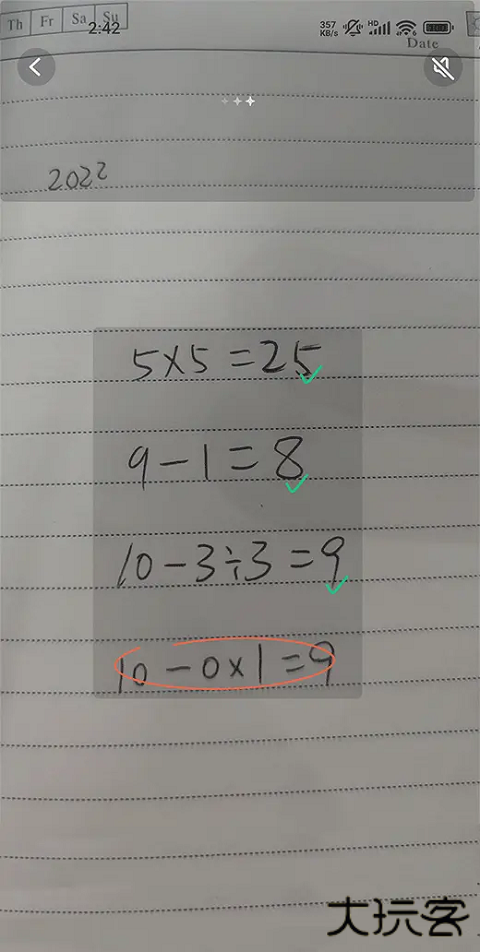 Th Fr Sa Su
2:42
357 KB/s HD 100
Date
2022
5×5=25
9-1=8
10-3÷3=9
10-0×1=9
大玩客